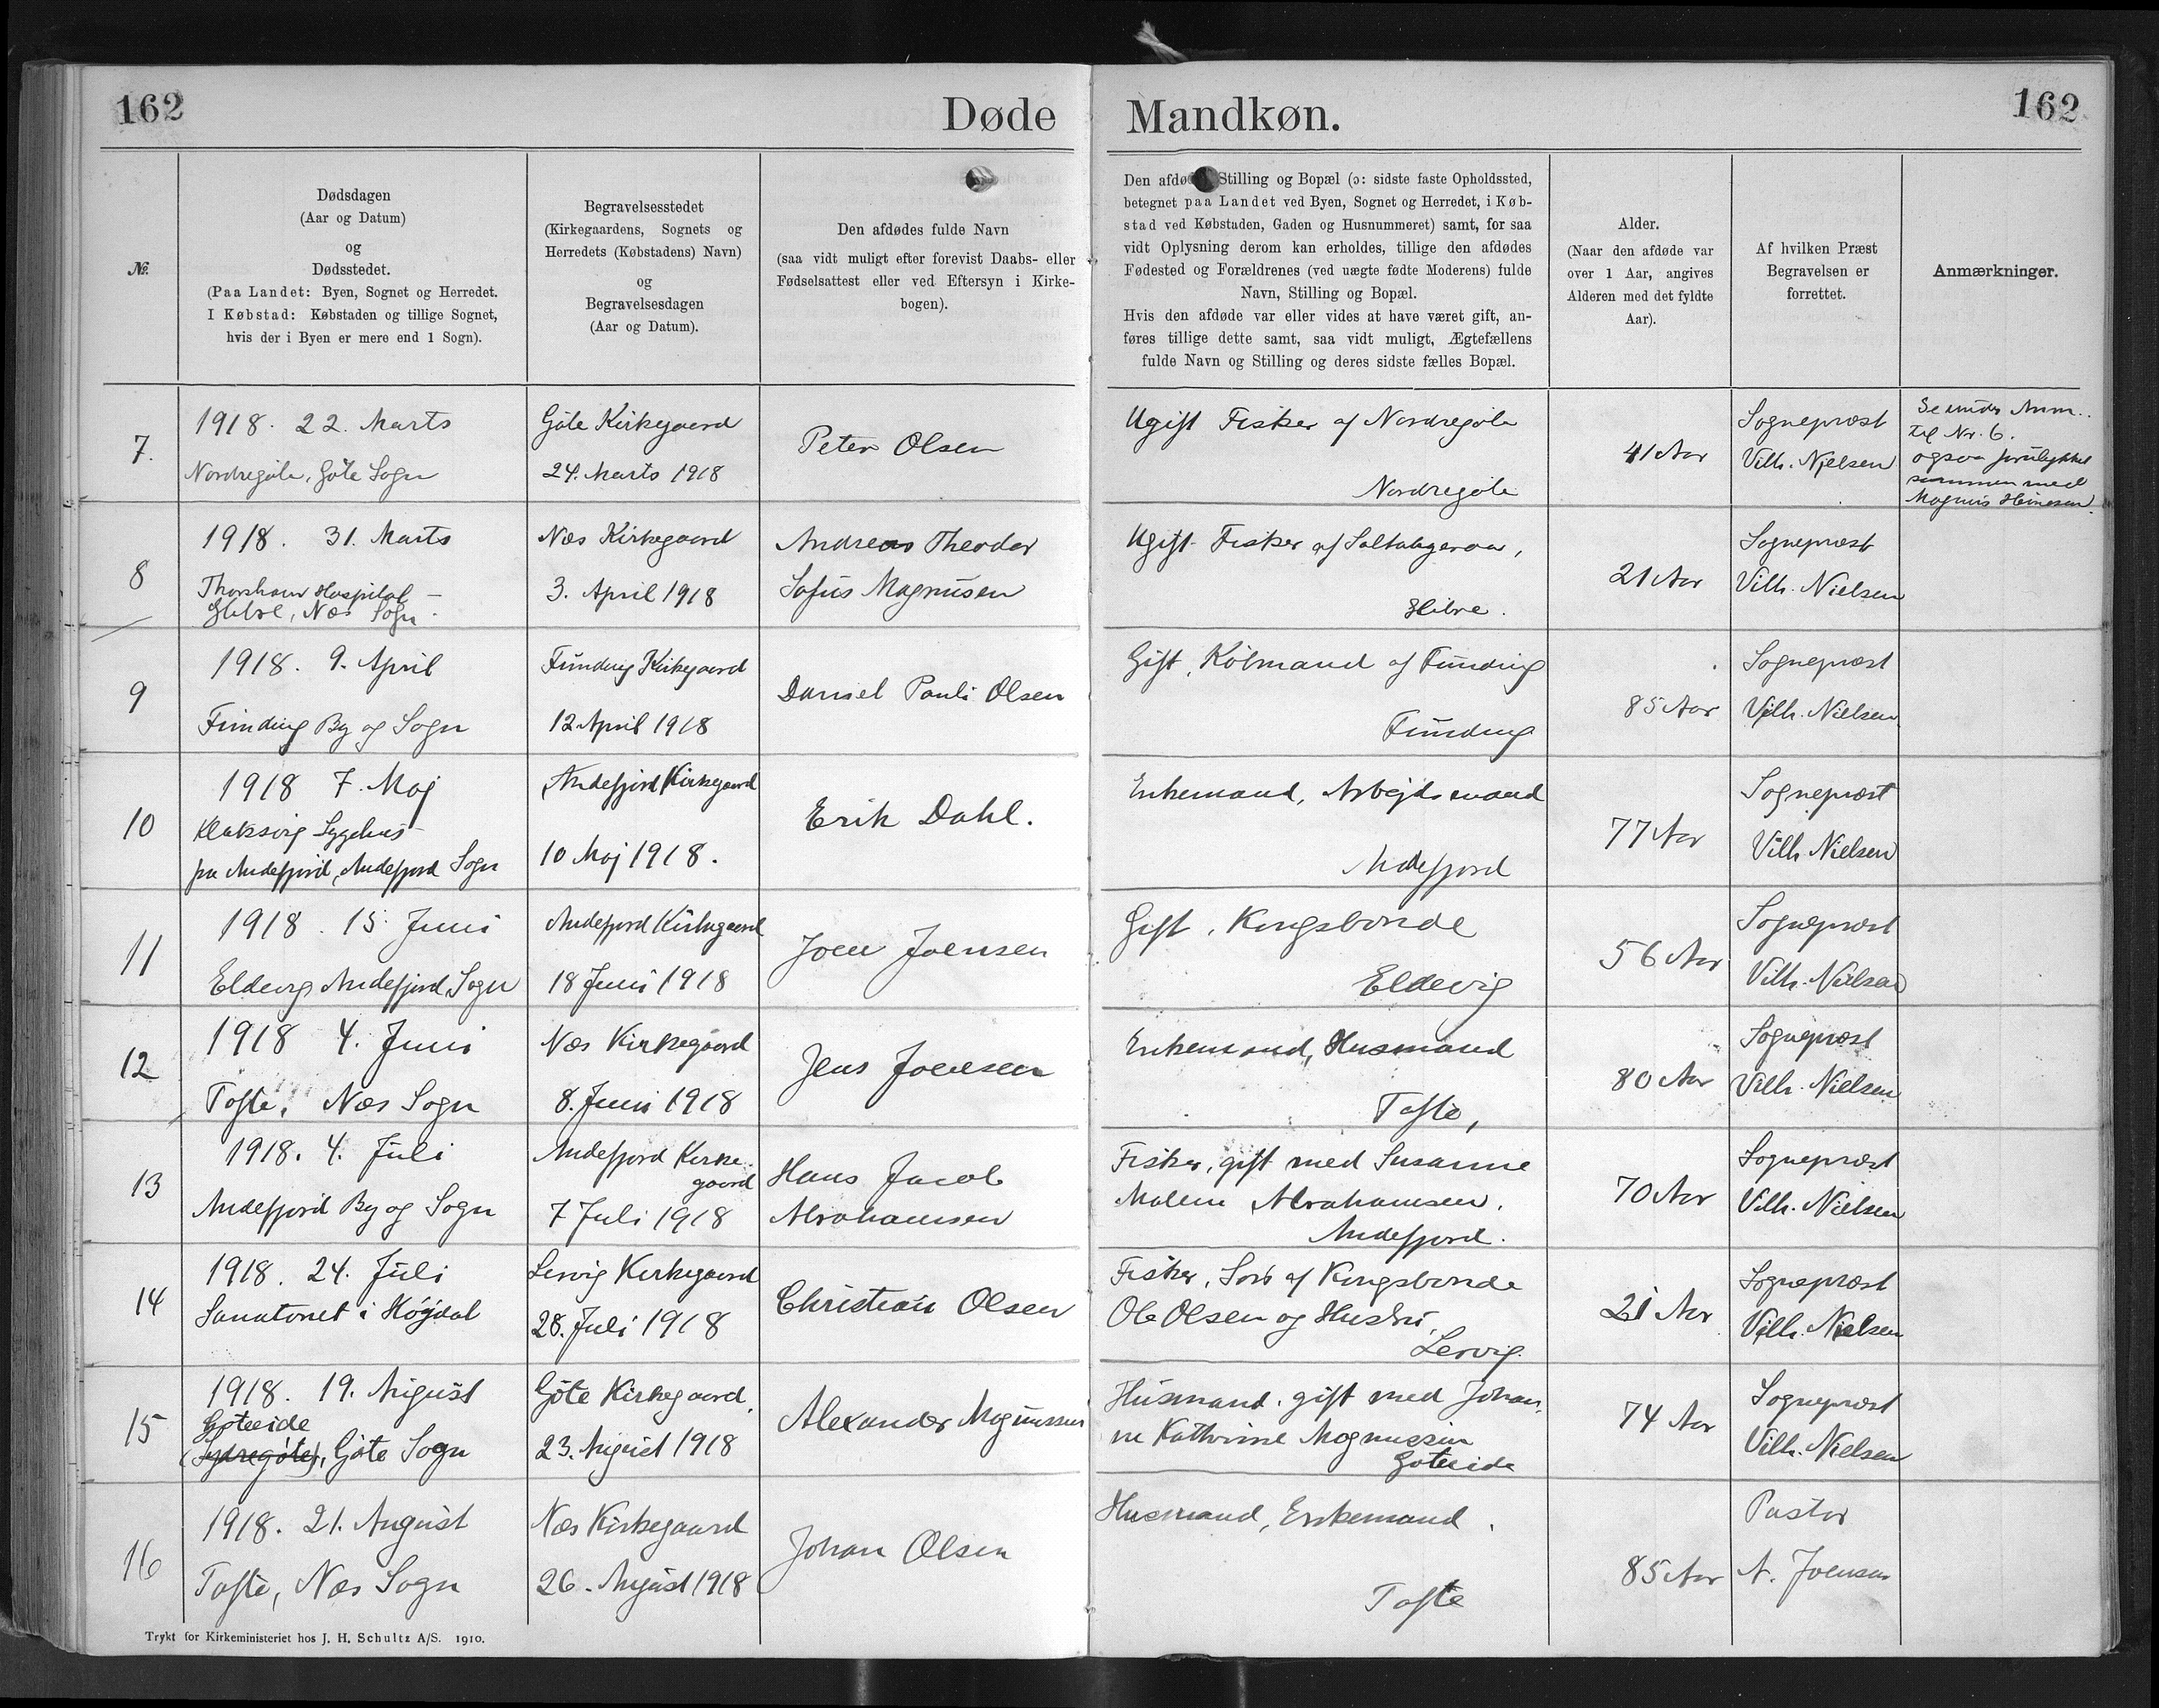 162
Døde
Mandkøn.
162
№
Dødsdagen
(Aar og Datum)
og
Dødsstedet.
(Paa Landet: Byen, Sognet og Herredet.
I Købstad: Købstaden og tillige Sognet,
hvis der i Byen er mere end 1 Sogn).
Begravelsesstedet
(Kirkegaardens, Sognets og
Herredets (Købstadens) Navn)
og
Begravelsesdagen
(Aar og Datum).
Den afdødes fulde Navn
(saa vidt muligt efter forevist Daabs- eller
Fødselsattest eller ved Eftersyn i Kirke-
bogen).
Den afdø Stilling og Bopæl (ɔ: sidste faste Opholdssted,
betegnet paa Landet ved Byen, Sognet og Herredet, i Køb-
stad ved Købstaden, Gaden og Husnummeret) samt, for saa
vidt Oplysning derom kan erholdes, tillige den afdødes
Fødested og Forældrenes (ved uægte fødte Moderens) fulde
Navn, Stilling og Bopæl.
Hvis den afdøde var eller vides at have været gift, an-
føres tillige dette samt, saa vidt muligt, Ægtefællens
fulde Navn og Stilling og deres sidste fælles Bopæl.
Alder.
(Naar den afdøde var
over 1 Aar, angives
Alderen med det fyldte
Aar).
Af hvilken Præst
Begravelsen er
forrettet.
Anmærkninger.
7.
1918. 22. Marts
Nordregöte, Göte Sogn
Göte Kirkegaard
24. Marts 1918
Peter Olsen
Ugift Fisker af Nordregöte
Nordregöte
41 Aar
Sognepræst
Vilh. Nielsen
Se under Anm.
til Nr. 6.
ogsaa forulykket
sammen med
Magnus Heinesen.
8
1918. 31. Marts
Thorshavn Hospital
Glibre, Næs Sogn.
Næs Kirkegaard
3. April 1918
Andreas Theodor
Sofus Magnusen
Ugift Fisker af Saltangeraa,
Glibre.
21 Aar
Sognepræst
Vilh. Nielsen
9
1918. 9. April
Funding By og Sogn
Funding Kirkegaard
12 April 1918
Daniel Pauli Olsen
Gift, Köbmand af Funding
Funding
85 Aar
Sognepræst
Vilh. Nielsen
10
1918 7. Maj
Klaksvig Sygehus
fra Andefjord, Andefjord Sogn
Andefjord Kirkegaard
10 Maj 1918.
Erik Dahl.
Enkemand, Arbejdsmand
Andefjord
77 Aar
Sognepræst
Vilh Nielsen
11
1918. 15. Juni
Eldevig Andefjord Sogn
Andefjord Kirkegaard
18 Juni 1918
Joen Joensen
Gift, Kongsbonde
Eldevig
56 Aar
Sognepræst
Vilh. Nielsen
12
1918 4. Juni
Tofte, Næs Sogn
Næs Kirkegaard
8. Juni 1918
Jens Joensen
Enkemand, Husmand
Tofte,
80 Aar
Sognepræst
Vilh. Nielsen
13
1918. 4. Juli
Andefjord By og Sogn
Andefjord Kirke-
gaard
7 Juli 1918
Hans Jacob
Abrahamsen
Fisker, gift med Susanne
Malene Abrahamsen.
Andefjord.
70 Aar
Sognepræst
Vilh. Nielsen
14
1918. 24. Juli
Sanatoriet i Höjdal
Lervig Kirkegaard
28. Juli 1918
Christian Olsen
Fisker, Sön af Kongsbonde
Ole Olsen og Hustru,
Lervig.
21 Aar
Sognepræst
Vilh. Nielsen
15
1918. 19. August
Göteeide
(Sydregöte), Göte Sogn
Göte Kirkegaard.
23. August 1918
Alexander Magnussen
Husmand. gift med Johan-
ne Kathrine Magnussen
Göteeide
74 Aar
Sognepræst
Vilh. Nielsen
16
1918. 21. August
Tofte, Næs Sogn
Næs Kirkegaard
26. August 1918
Johan Olsen
Husmand, Enkemand.
Tofte
85 Aar
Pastor
A. Joensen
Trykt for Kirkeministeriet hos J. H. Schultz A/S. 1910.